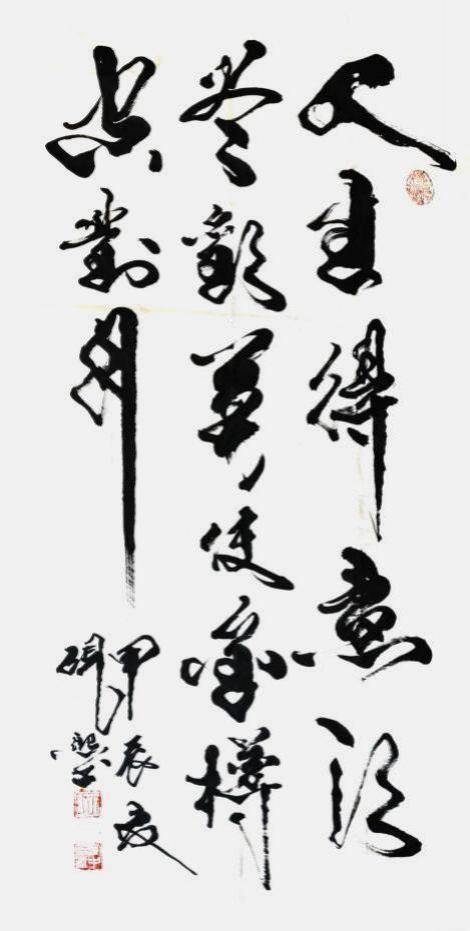 人生得意須
尽歡莫使金樽
空對月
甲辰夏